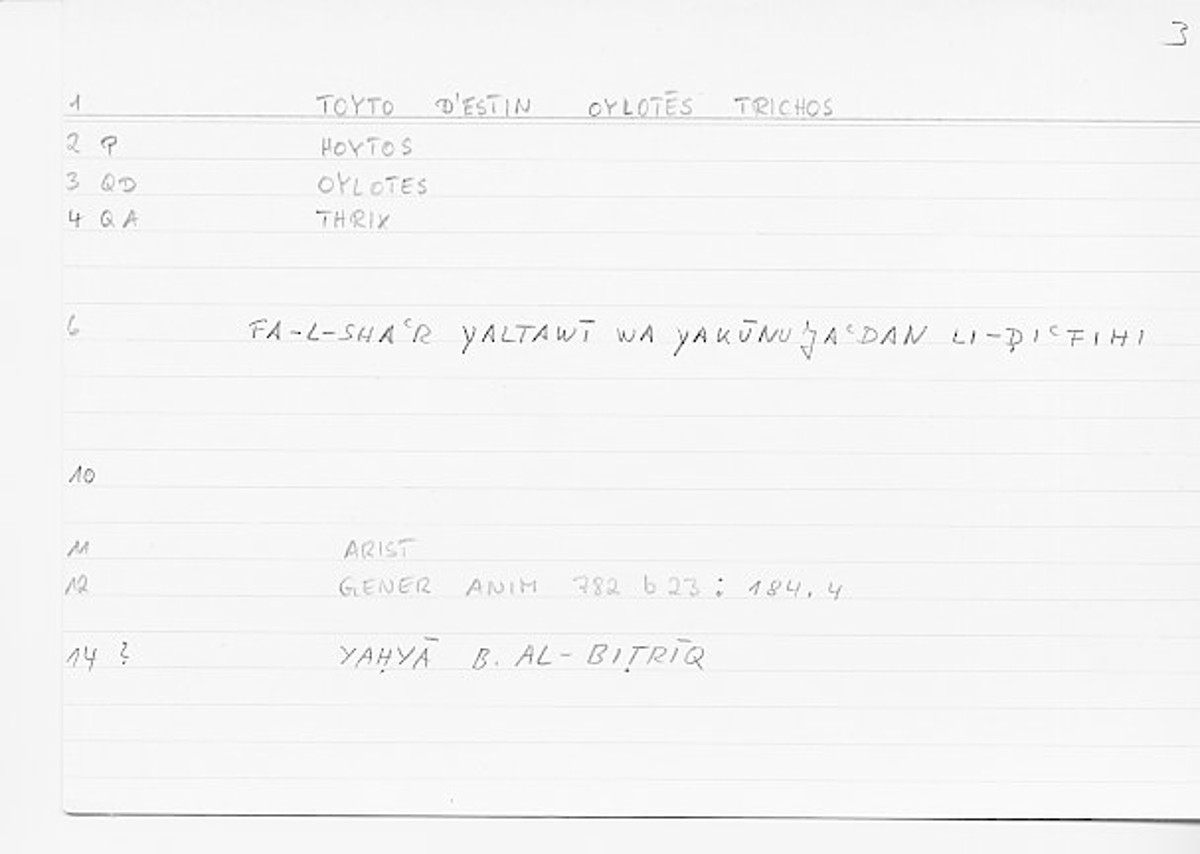 3
1 TOYTO D'ESTIN OYLOTĒS TRICHOS
2 P HOYTOS
3 QD OYLOTES
4 QA THRIX
6 FA-L-SHAᶜR YALTAWĪ WA YAKŪNU ǦAᶜDAN LI-ḌIᶜFIHI
10
11 ARIST
12 GENER ANIM 782 b 23 : 184.4
14 ? YAḤYĀ B. AL-BIṬRĪQ